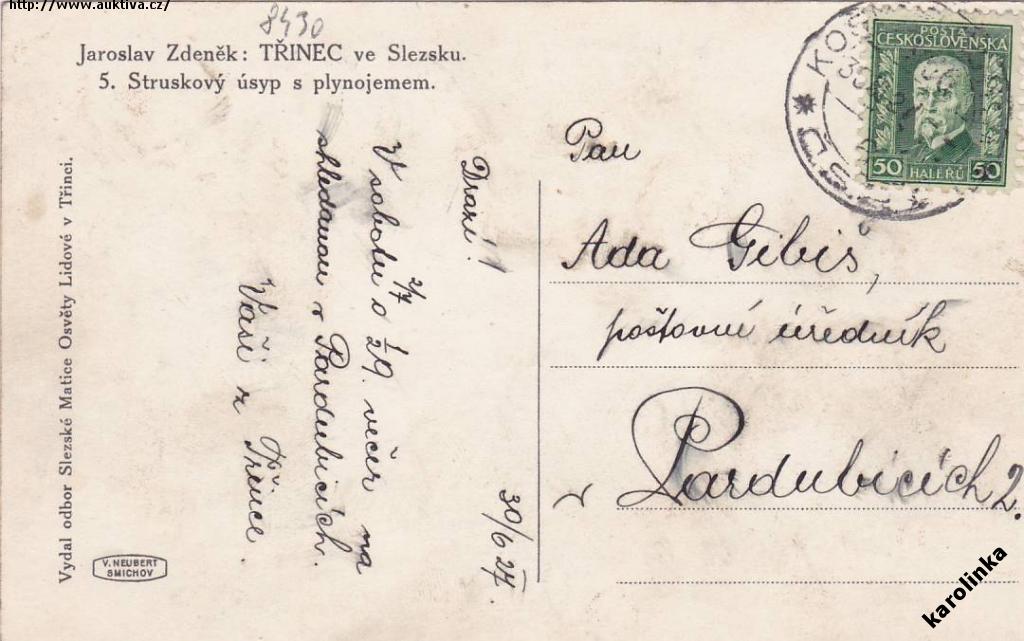 http://www.auktiva.cz/
8430
Jaroslav Zdeněk: TŘINEC ve Slezsku.
5. Struskový úsyp s plynojemem.
Vydal odbor Slezské Matice Osvěty Lidové v Třinci.
V. NEUBERT
SMÍCHOV
30/6 27.
Drazí!
V sobotu 2/7 o ½9. večer na
shledanou v Pardubicích.
Vaši z Třince.
POŠTA
ČESKOSLOVENSKA
50 HALÉŘŮ 50
Pan
Ada Gibiš,
poštovní úředník
v Pardubicích 2.
karolinka